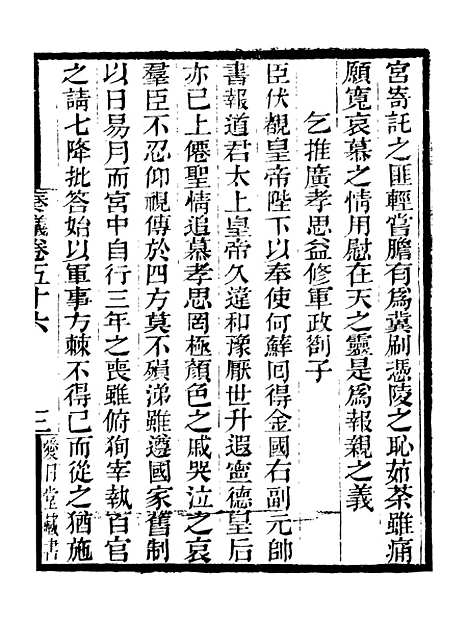 宮寄託之匪輕嘗膽有爲冀刷憑陵之恥茹荼雖痛
願寬哀慕之情用慰在天之靈是爲報親之義
乞推廣孝思益修軍政劄子
臣伏覩皇帝陛下以奉使何蘚回得金國右副元帥
書報道君太上皇帝久違和豫厭世升遐寧德皇后
亦已上僊聖情追慕孝思罔極顏色之戚哭泣之哀
羣臣不忍仰視傳於四方莫不殞涕雖遵國家舊制
以日易月而宮中自行三年之喪雖俯狥宰執百官
之請七降批答始以軍事方棘不得已而從之猶施
奏議卷五十六
三
愛日堂藏書